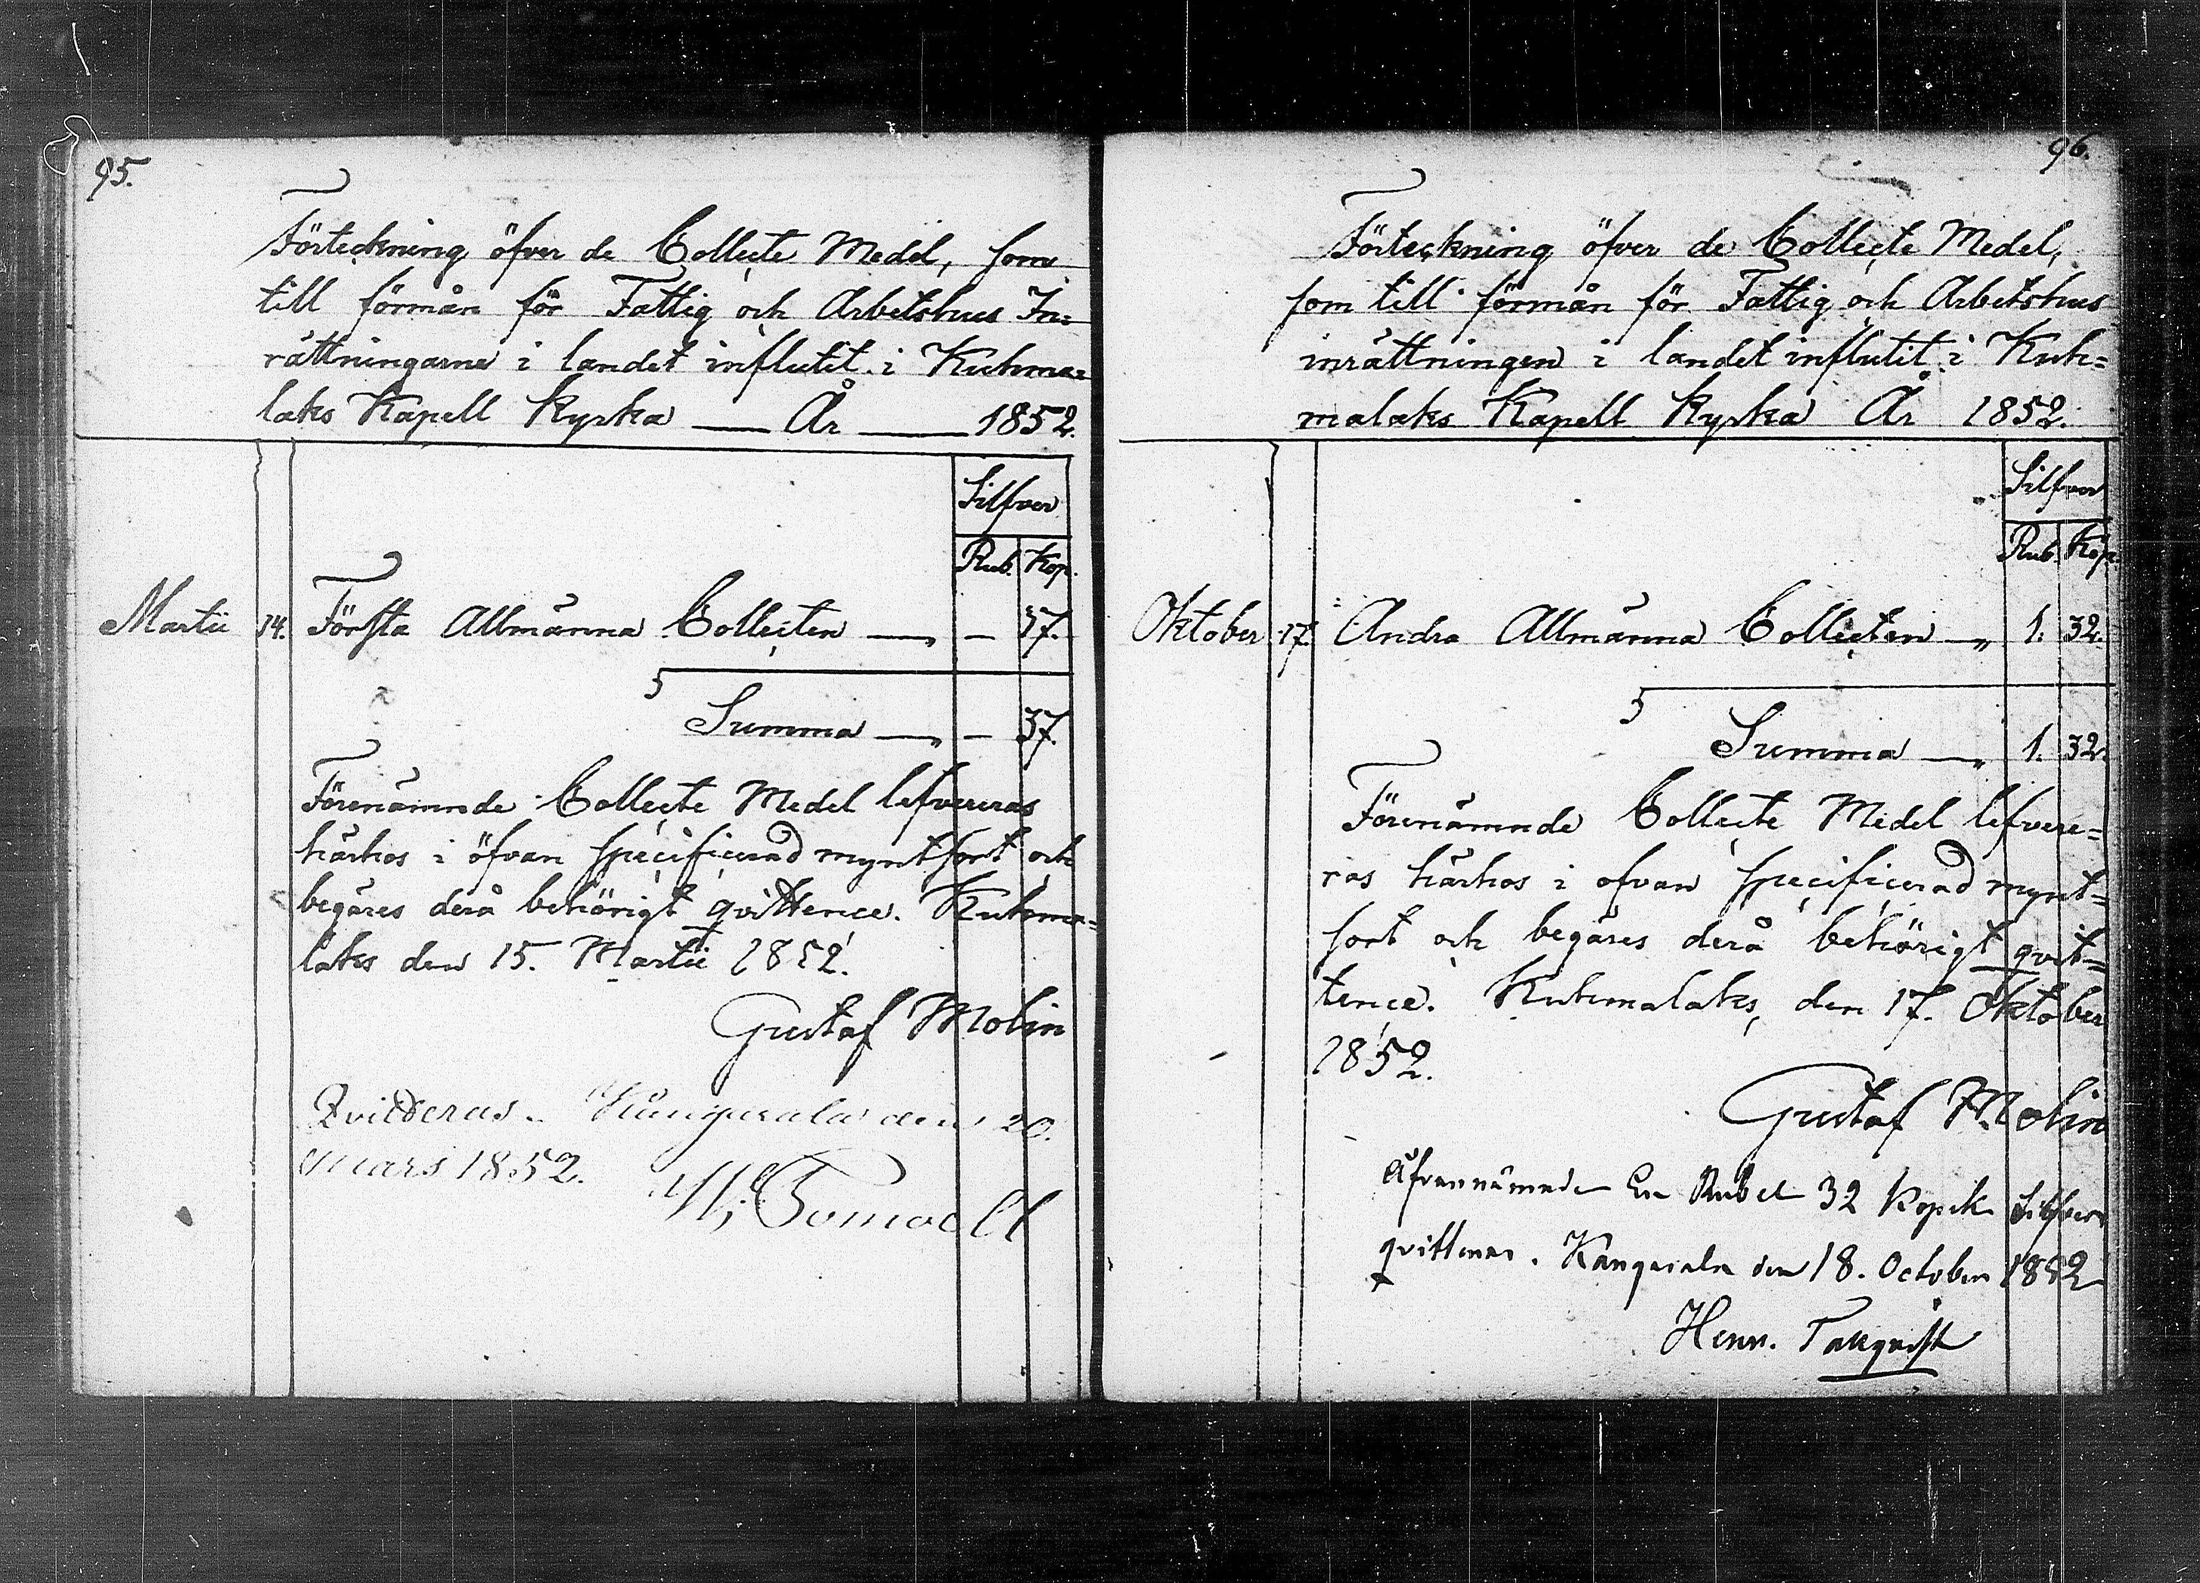 95.
Förteckning öfver de Collecte Medel, som
till förmån för Fattig och Arbetshus In=
rättningarne i landet influtit i Kuhma=
laks Kapell Kyrka — År — 1852.
Silfver
Rub. Kop.
Martii 14. Första Allmänna Collecten — „ — 37.
Summa — „ — 37.
Förenämnde Collecte Medel lefvereras
härhos i öfvan specificerad myntsort och
begäres derå behörigt qvittence. Kuhma=
laks den 15. Martii 1852.
Gustaf Molin
Qvitteras. Kangasala den 20.
Mars 1852.
96.
Förteckning öfver de Collecte Medel,
som till förmån för Fattig och Arbetshus
inrättningen i landet influtit i Kuh=
malaks Kapell Kyrka År 1852.
Silfver
Rub. Kop.
Oktober 17. Andra Allmänna Collecten — „ 1. 32.
Summa — „ 1. 32.
Förenämnde Collecte Medel lefvere=
ras härhos i ofvan specificerad mynt=
sort och begäres derå behörigt qvit=
tence. Kuhmalaks, den 17. Oktober
1852.
Gustaf Molin
Ofvannämnde En Rubel 32 Kopek Silfver
qvitteras. Kangasala den 18. October 1852
Henr.